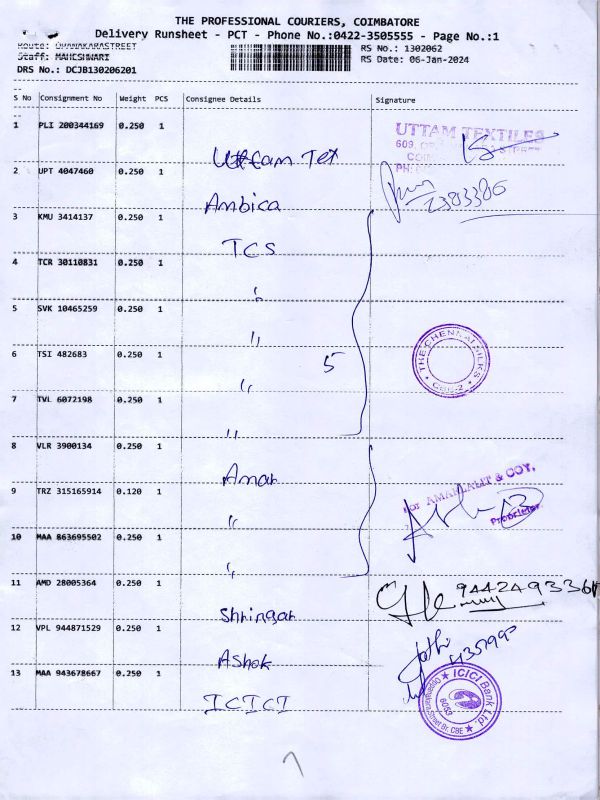 THE PROFESSIONAL COURIERS, COIMBATORE
Delivery Runsheet - PCT - Phone No.:0422-3505555 - Page No.:1
Route: OPANAKARASTREET
Staff: MAHESHWARI
DRS No.: DCJB130206201
RS No.: 1302062
RS Date: 06-Jan-2024
S No Consignment No Weight PCS Consignee Details Signature
1 PLI 200344169 0.250 1 Uttam Tex
UTTAM TEXTILES
609,
2 UPT 4047460 0.250 1 Ambica
2383386
3 KMU 3414137 0.250 1 TCS
4 TCR 30110831 0.250 1 "
5 SVK 10465259 0.250 1 "
THE CHENNAI SILKS
CBE-2
6 TSI 482683 0.250 1 "
5
7 TVL 6072198 0.250 1 "
8 VLR 3900134 0.250 1 Amar
For AMARLALIT & COY,
Proprietor
9 TRZ 315165914 0.120 1 "
10 MAA 863695502 0.250 1 "
11 AMD 28005364 0.250 1 Shringar
12 VPL 944871529 0.250 1 Ashok
13 MAA 943678667 0.250 1 ICICI
ICICI Bank Ltd
6053
Street Br. CBE